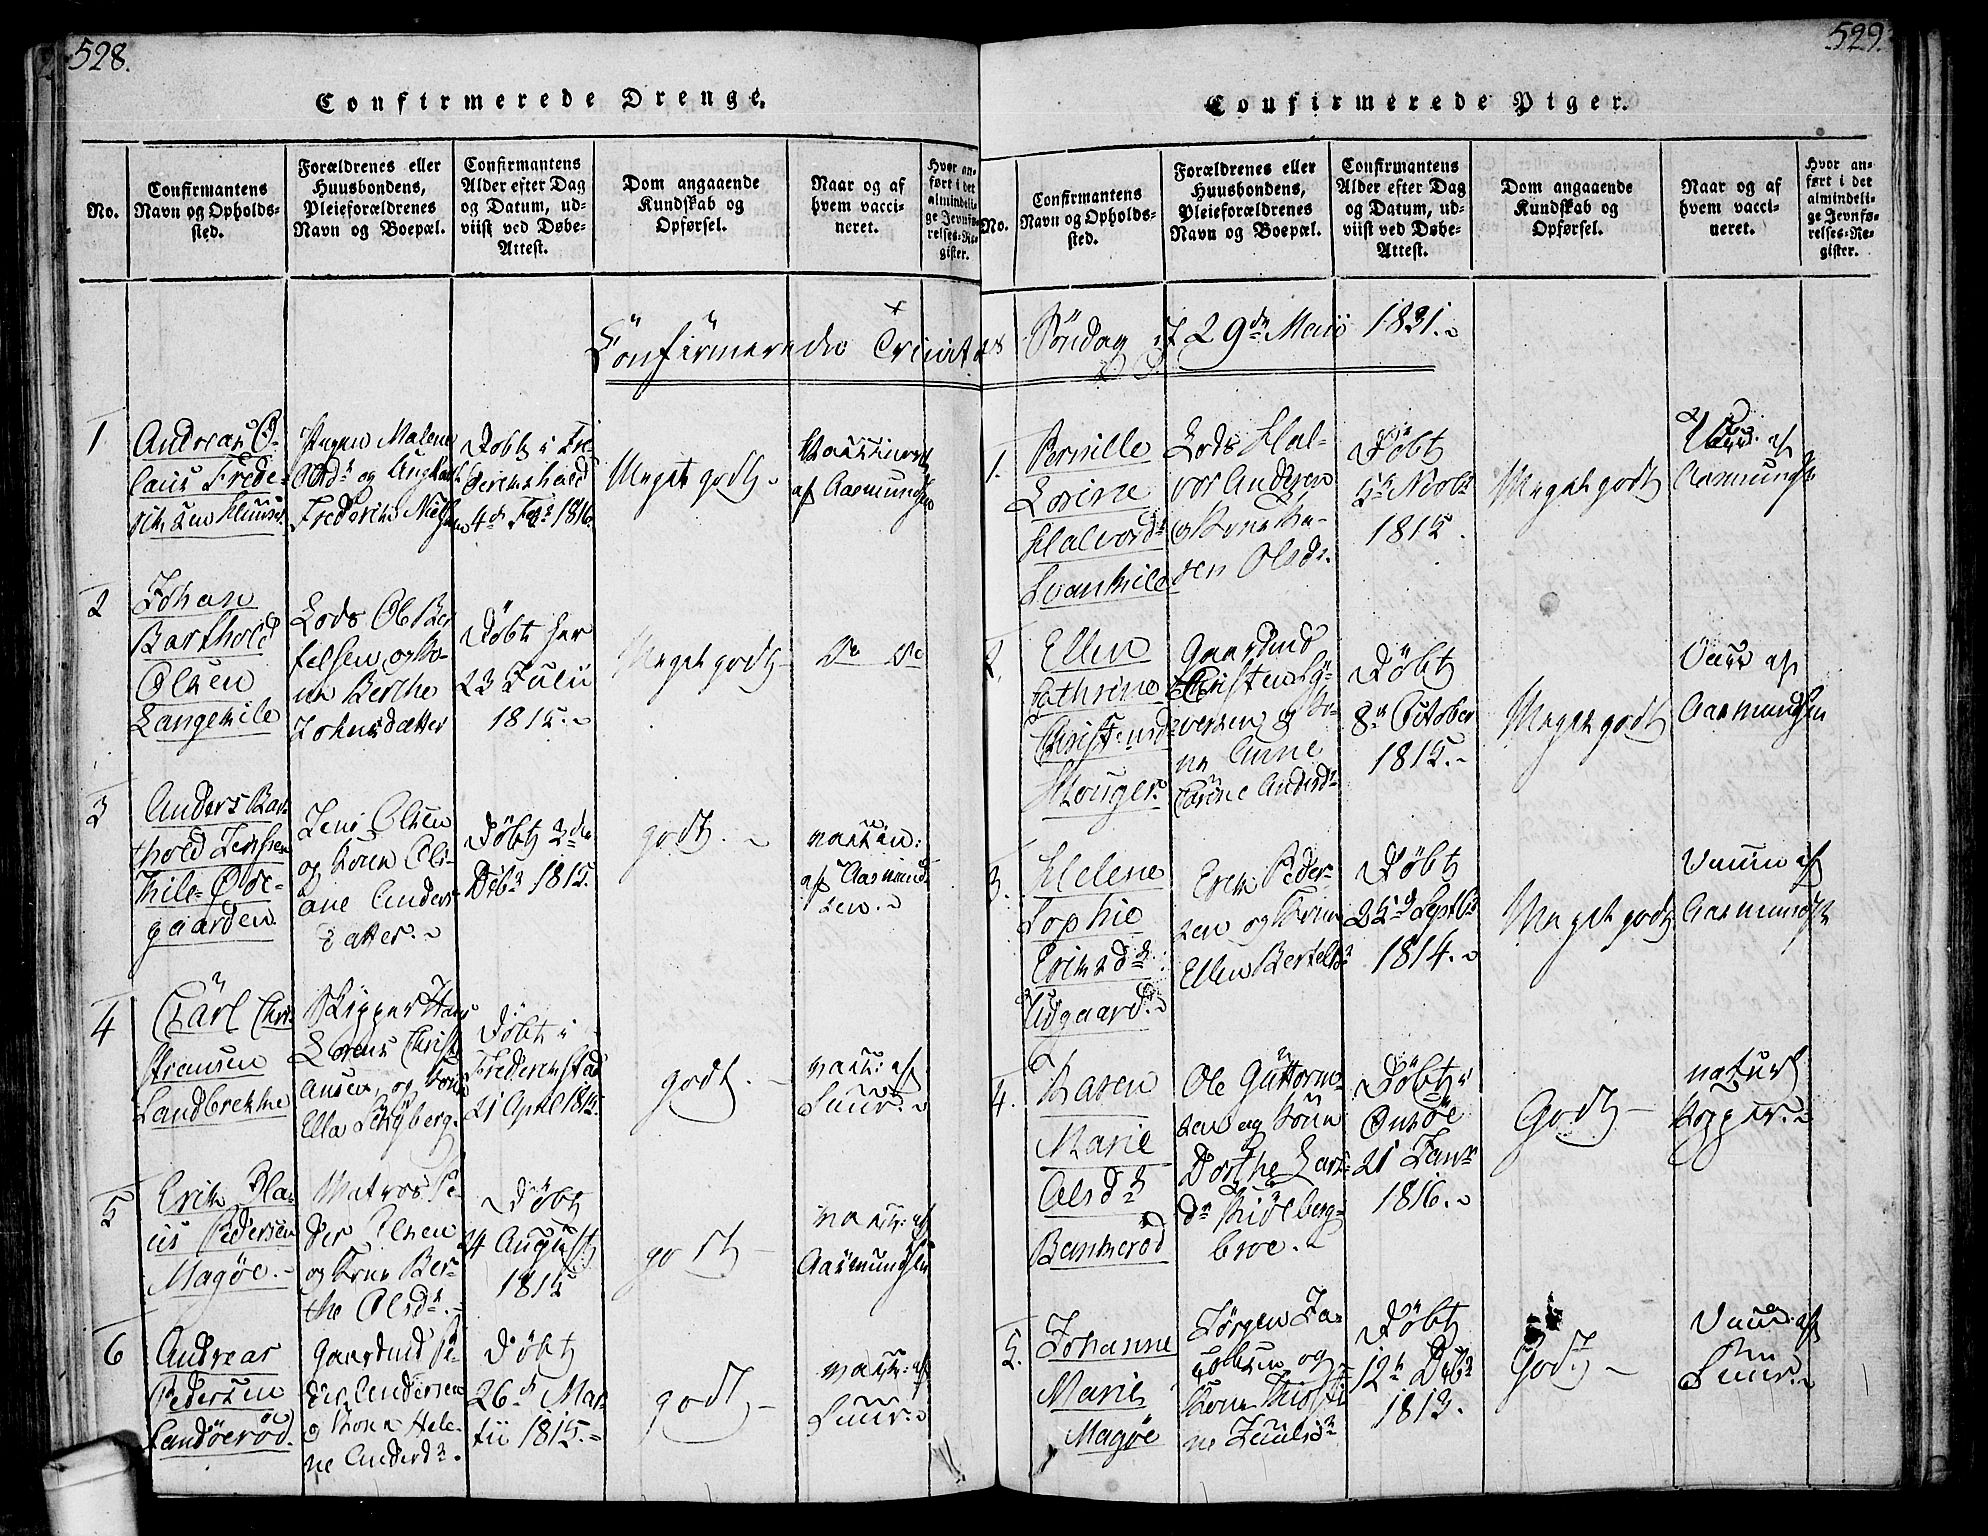 528.
Confirmerede Drenge.
No.
Confirmantens
Navn og Opholds-
sted.
Forældrenes eller
Huusbondens,
Pleieforældrenes
Navn og Boepæl.
Confirmantens
Alder efter Dag
og Datum, ud-
viist ved Døbe-
Attest.
Dom angaaende
Kundskab og
Opførsel.
Naar og af
hvem vacci-
neret.
Hvor an-
ført i det
almindeli-
ge Jevnfø-
relses-Re-
gister.
Confirmerede Trinitas
1
Andreas O-
laus Frede-
Pigen Malene
Olsdr og Ungkarl
Frederik Nielsen
Døbt i Fre-
derikshald
4de Febr 1816.
Meget godt
Vaccineret
af Aasmundsen
2
Johan
Barthold
Olsen
Langekile
Lods Ole Ber
telsen og Ko-
ne Berthe
Johnsdatter
Døbt her
23 Julii
1815.
Meget godt
Do Do
3
Anders Bar-
thold Jensen
Kile-Øde-
gaarden
Jens Olsen
og Kone Oli-
ane Anders-
datter.
Døbt 3de
Debr 1815.
godt.
vaccin:
af Aasmund
sen.
4
Carl Chri-
stiansen
Landbrekke
Skipper Hans
Lorens Christi
ansen, og Kone
Ella Schyberg.
Døbt i
Frederikstad
21 April 1815.
godt.
vacc: af
Suur.
5
Erik Ola-
us Pedersen
Magøe.
Matros Pe-
der Olsen
og Kone Ber-
the Olsdr.
Døbt
24 August
1815
godt
vacc: af
Aasmundsen
6
Andreas
Pedersen
Sandøerød.
Gaardmd Pe-
der Andersen
og Kone Hele-
ne Andersdr.
Døbt
26de Mar-
tii 1815.
godt
vacc: af
Suur.
529.
Confirmerede Piger.
No.
Confirmantens
Navn og Opholds-
sted.
Forældrenes eller
Huusbondens,
Pleieforældrenes
Navn og Boepæl.
Confirmantens
Alder efter Dag
og Datum, ud-
viist ved Døbe-
Attest.
Dom angaaende
Kundskab og
Opførsel.
Naar og af
hvem vacci-
neret.
Hvor an-
ført i det
almindeli-
ge Jevnfø-
relses-Re-
gister.
Søndag d. 29de Maii 1831.
1.
Pernille
Lorine
Halvorsdr
Svanekile
Lods Hal-
vor Andersen
og Kone Ka-
ren Olsdr.
Døbt
5te Novbr
1815.
Meget godt
Vacc. af
Aasmundsen
2.
Ellen
Cathrine
Christensdr
Gaardmd
Christen Sy-
versen og Ko-
ne Anne
Carine Andersdr
Døbt
8de October
1815.
Meget godt
Vacc af
Aasmundsen
3.
Helene
Sophie
Eriksdr
Udgaard.
Erik Peder-
sen og Kone
Ellen Bertelsdr
Døbt
25de Septbr
1814.
Meget godt
Vaccin af
Aasmundsen
4.
Karen
Marie
Olsdr
Ole Guttorm-
sen og Kone
Dorthe Lars-
dr Kiølberg-
broe.
Døbt i
Onsøe
21 Janr
1816.
Godt
naturl
Kopper.
5.
Johanne
Marie
Magøe
Jørgen Ja-
cobsen og
Døbt
12te Debr
1813.
Godt
Vacc. af
Suur.